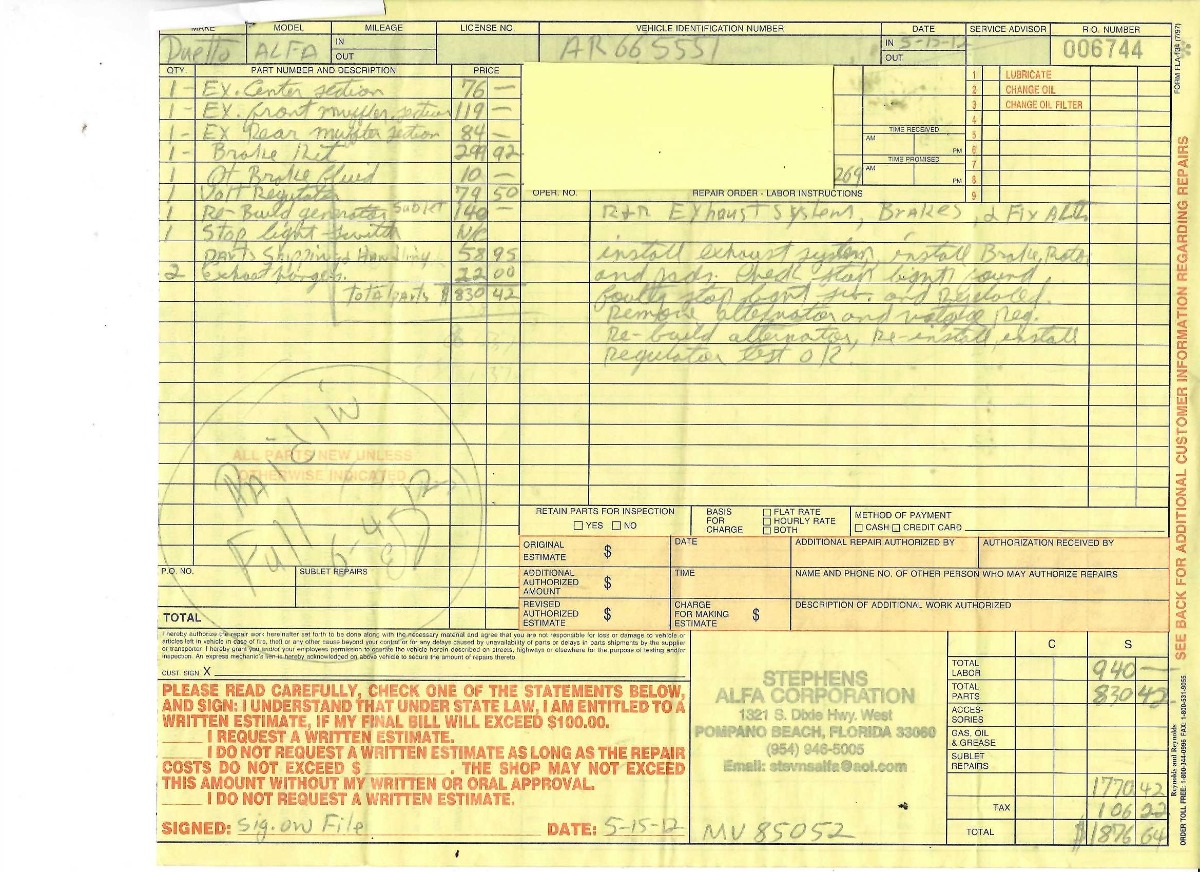 MAKE MODEL MILEAGE LICENSE NO. VEHICLE IDENTIFICATION NUMBER DATE SERVICE ADVISOR R.O. NUMBER
Duetto ALFA IN OUT AR665551 IN 5-15-12 OUT 006744
FORM FLA-134 (7/97)
QTY. PART NUMBER AND DESCRIPTION PRICE
1 - Ex. Center section 76 —
1 - Ex. front muffler section 119 —
1 - Ex Rear muffler section 84 —
1 - Brake Kit 299 92
1 Qt Brake fluid 10 —
1 Volt Regulator 79 50
1 Re-Build generator Sublet 140 —
1 Stop light switch N/C
Parts Shipping & Handling 58 95
2 Exhaust hangers. 22 00
Total parts $830 42
1 LUBRICATE
2 CHANGE OIL
3 CHANGE OIL FILTER
4
5
6
7
8
9
TIME RECEIVED
AM PM
TIME PROMISED
269 AM PM
OPER. NO. REPAIR ORDER - LABOR INSTRUCTIONS
R+R Exhaust System, Brakes, & Fix
install exhaust system, install Brake, Roto
and pads. Check stop light found
faulty stop light sw. and Replaced.
Remove alternator and voltage Reg.
Re-build alternator, Re-install, install
Regulator test O/K.
ALL PARTS NEW UNLESS
OTHERWISE INDICATED
Paid in
Full
RETAIN PARTS FOR INSPECTION
YES NO
BASIS FOR CHARGE
FLAT RATE
HOURLY RATE
BOTH
METHOD OF PAYMENT
CASH CREDIT CARD
ORIGINAL ESTIMATE $ DATE ADDITIONAL REPAIR AUTHORIZED BY AUTHORIZATION RECEIVED BY
ADDITIONAL AUTHORIZED AMOUNT $ TIME NAME AND PHONE NO. OF OTHER PERSON WHO MAY AUTHORIZE REPAIRS
REVISED AUTHORIZED ESTIMATE $ CHARGE FOR MAKING ESTIMATE $ DESCRIPTION OF ADDITIONAL WORK AUTHORIZED
P.O. NO. SUBLET REPAIRS
TOTAL
I hereby authorize the repair work hereinafter set forth to be done along with the necessary material and agree that you are not responsible for loss or damage to vehicle or
articles left in vehicle in case of fire, theft or any other cause beyond your control or for any delays caused by unavailability of parts or delays in parts shipments by the supplier
or transporter. I hereby grant you and/or your employees permission to operate the vehicle herein described on streets, highways or elsewhere for the purpose of testing and/or
inspection. An express mechanic's lien is hereby acknowledged on above vehicle to secure the amount of repairs thereto.
CUST. SIGN X
PLEASE READ CAREFULLY, CHECK ONE OF THE STATEMENTS BELOW,
AND SIGN: I UNDERSTAND THAT UNDER STATE LAW, I AM ENTITLED TO A
WRITTEN ESTIMATE, IF MY FINAL BILL WILL EXCEED $100.00.
I REQUEST A WRITTEN ESTIMATE.
I DO NOT REQUEST A WRITTEN ESTIMATE AS LONG AS THE REPAIR
COSTS DO NOT EXCEED $ . THE SHOP MAY NOT EXCEED
THIS AMOUNT WITHOUT MY WRITTEN OR ORAL APPROVAL.
I DO NOT REQUEST A WRITTEN ESTIMATE.
SIGNED: Sig. on File DATE: 5-15-12
STEPHENS
ALFA CORPORATION
1321 S. Dixie Hwy. West
POMPANO BEACH, FLORIDA 33060
(954) 946-5005
Email: stevnsalfa@aol.com
MV 85052
C S
TOTAL LABOR 940 —
TOTAL PARTS 830 42
ACCESSORIES
GAS, OIL & GREASE
SUBLET REPAIRS
1770 42
TAX 106 22
TOTAL $1876 64
SEE BACK FOR ADDITIONAL CUSTOMER INFORMATION REGARDING REPAIRS